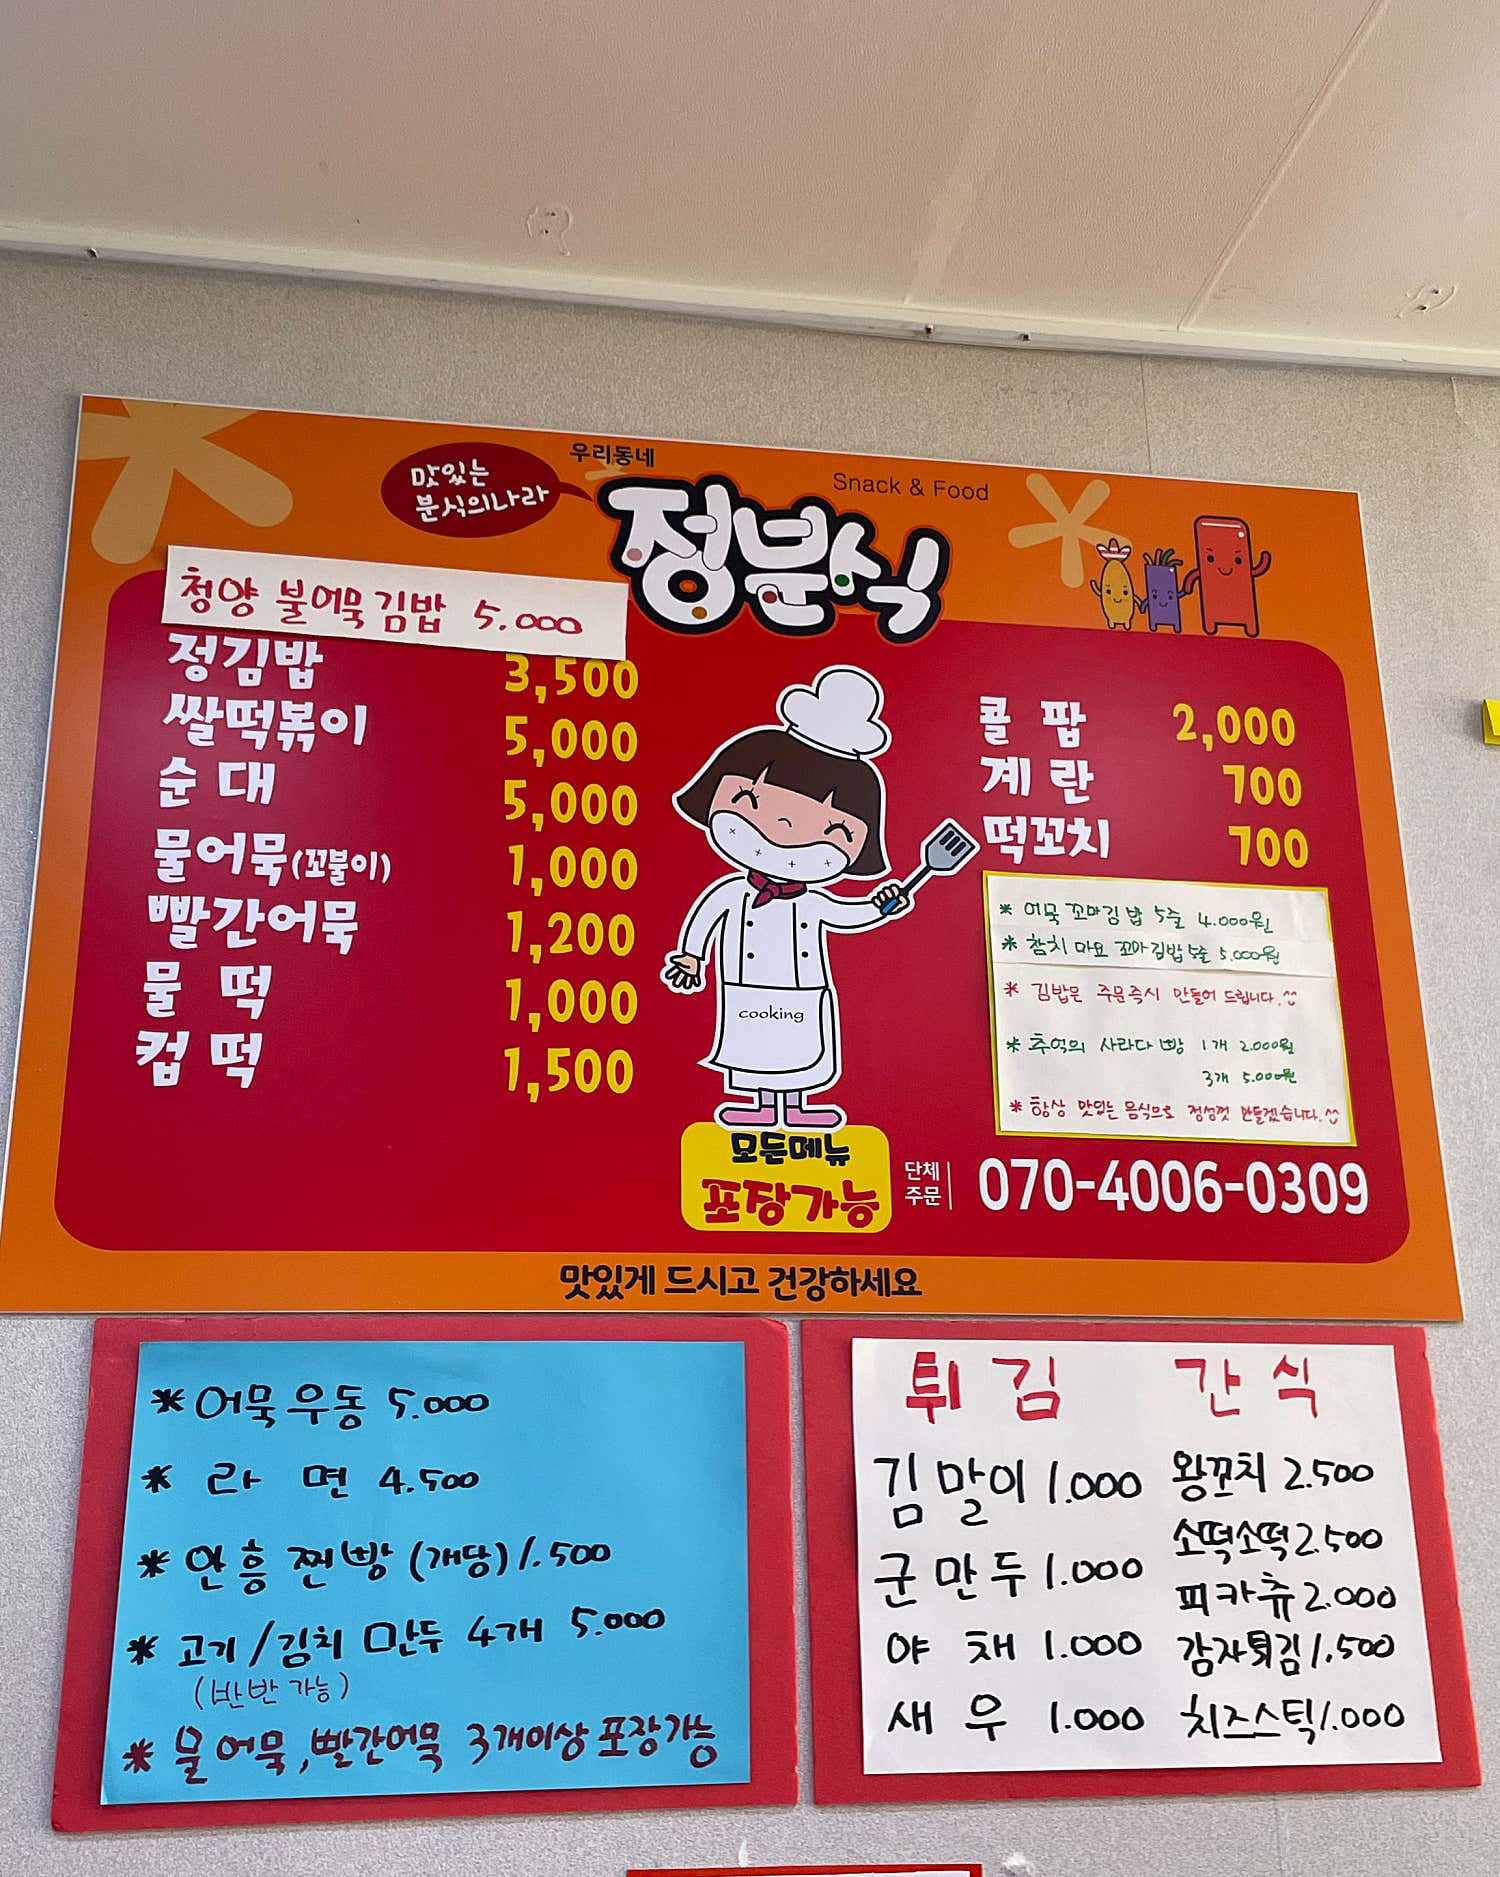 우리동네
맛있는
분식의나라
정분식
Snack & Food
청양 불어묵김밥 5.000
정김밥 3,500
쌀떡볶이 5,000
순대 5,000
물어묵(꼬불이) 1,000
빨간어묵 1,200
물떡 1,000
컵떡 1,500
콜팝 2,000
계란 700
떡꼬치 700
* 어묵 꼬마김밥 5줄 4.000원
* 참치 마요 꼬마김밥 5줄 5.000원
* 김밥은 주문즉시 만들어 드립니다.^^
* 추억의 사라다빵 1개 2.000원
3개 5.000원
* 항상 맛있는 음식으로 정성껏 만들겠습니다.^^
cooking
모든메뉴
포장가능
단체
주문
070-4006-0309
맛있게 드시고 건강하세요
* 어묵우동 5.000
* 라면 4.500
* 안흥찐빵 (개당) 1.500
* 고기/김치 만두 4개 5.000
(반반 가능)
* 물어묵, 빨간어묵 3개이상 포장가능
튀김
김말이 1.000
군만두 1.000
야채 1.000
새우 1.000
간식
왕꼬치 2.500
소떡소떡 2.500
피카츄 2.000
감자튀김 1.500
치즈스틱 1.000